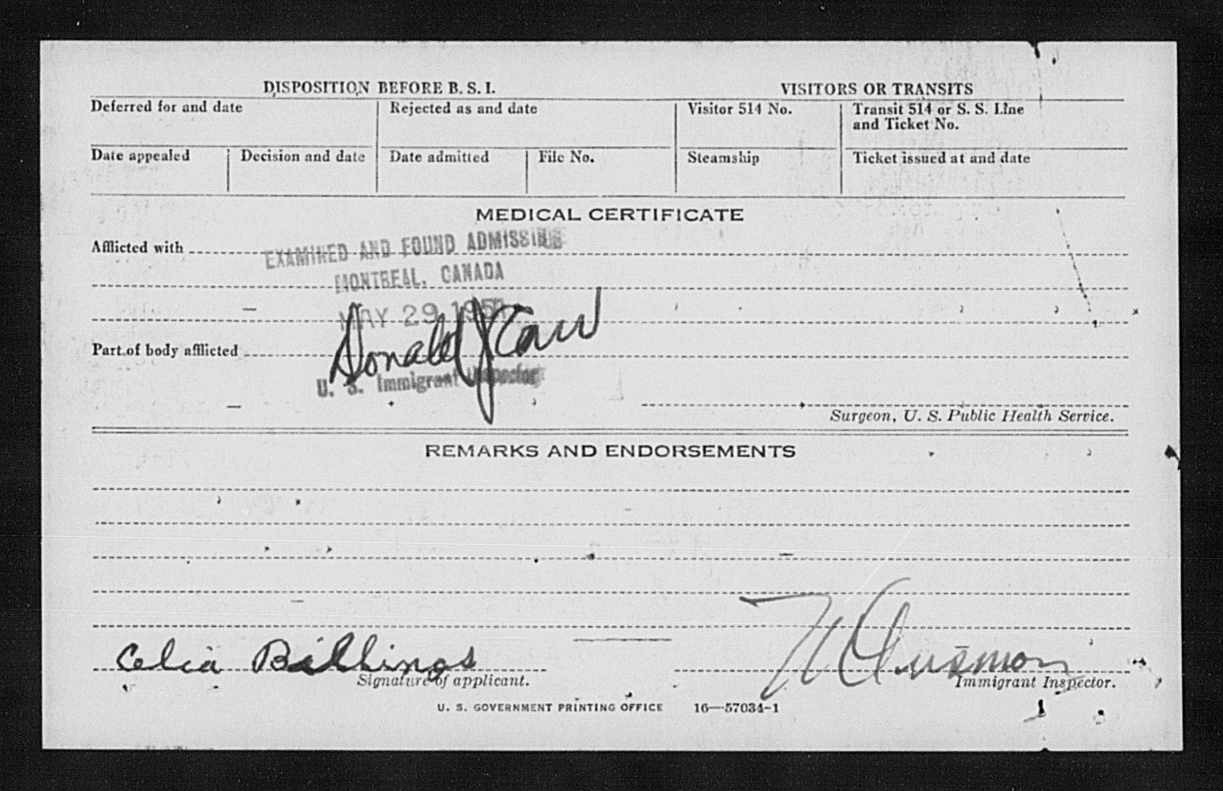 DISPOSITION BEFORE B. S. I. VISITORS OR TRANSITS
Deferred for and date Rejected as and date Visitor 514 No. Transit 514 or S. S. Line
and Ticket No.
Date appealed Decision and date Date admitted File No. Steamship Ticket issued at and date
MEDICAL CERTIFICATE
Afflicted with
EXAMINED AND FOUND ADMISSIBLE
MONTREAL, CANADA
MAY 29
Donald J Carr
Part of body afflicted
U. S. Immigrant Inspector
Surgeon, U. S. Public Health Service.
REMARKS AND ENDORSEMENTS
Celia Billings
Signature of applicant. Immigrant Inspector.
U. S. GOVERNMENT PRINTING OFFICE 16—57034-1